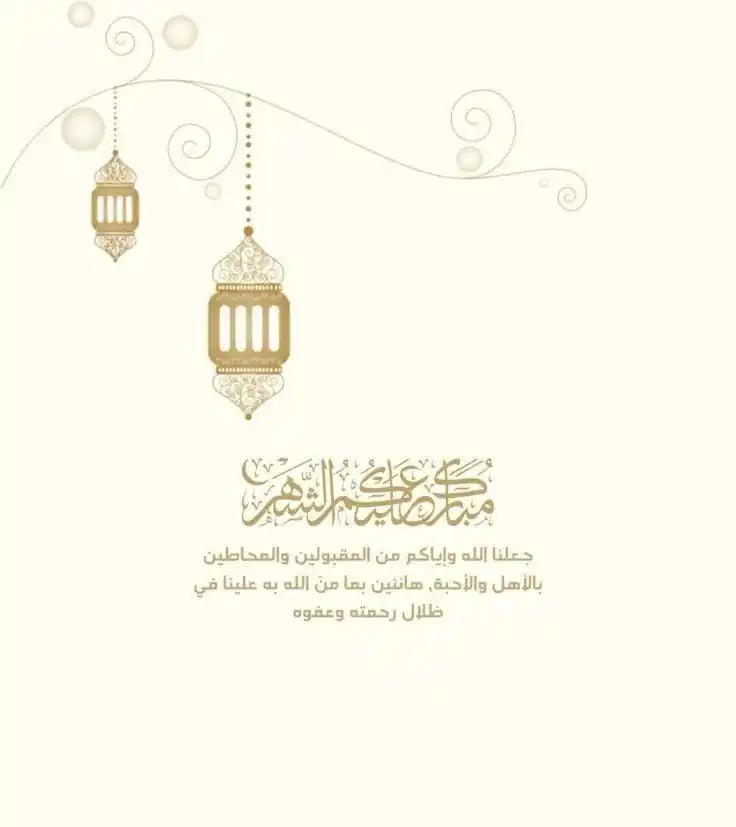 مبارك عليكم الشهر
جعلنا الله وإياكم من المقبولين والمحاطين
بالأهل والأحبة, هانئين بما منَ الله به علينا في
ظلال رحمته وعفوه